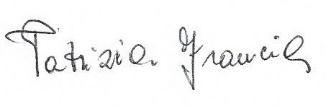 Patrizia Francia